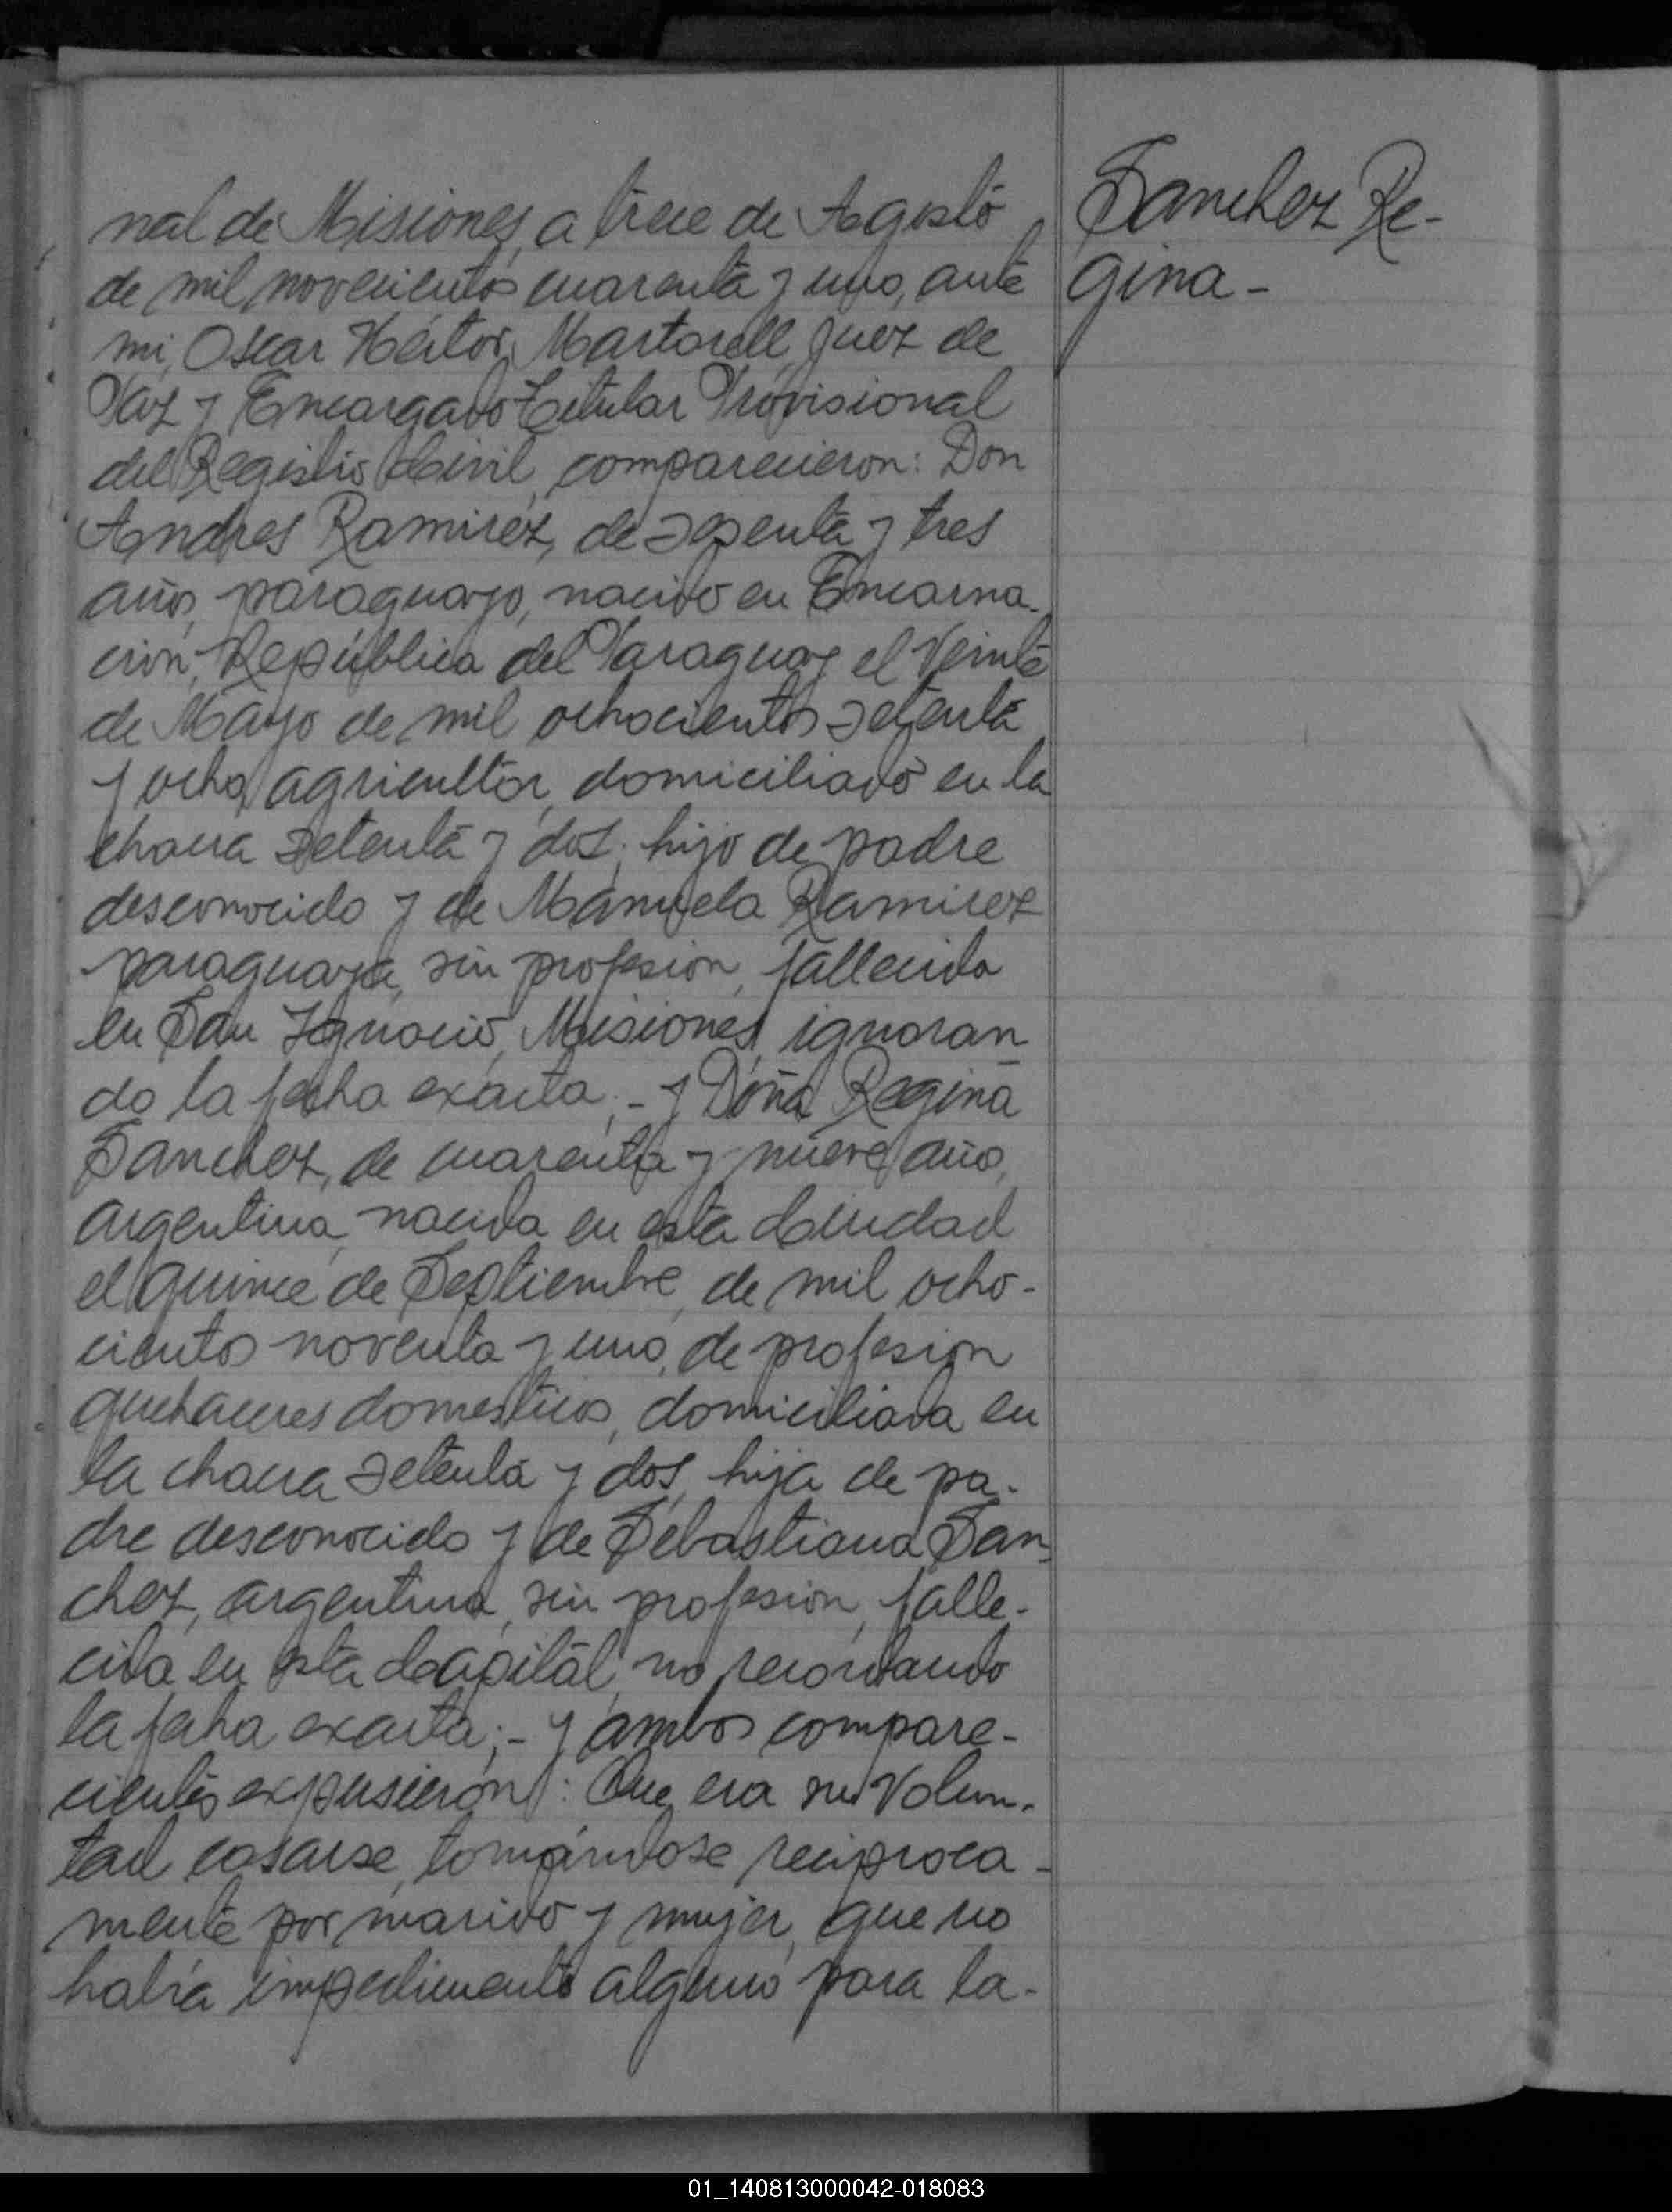 nal de Misiones, a trece de Agosto
de mil novecientos cuarenta y uno, ante
mi, Oscar Héctor Martorell, Juez de
Paz y Encargado Titular Provisional
del Registro Civil, comparecieron: Don
Andres Ramirez, de sesenta y tres
años, paraguayo, nacido en Encarna-
ción, República del Paraguay el veinte
de Mayo de mil ochocientos setenta
y ocho, agricultor, domiciliado en la
chacra setenta y dos; hijo de padre
desconocido y de Manuela Ramirez
paraguaya, sin profesion, fallecida
en San Ignacio, Misiones, ignoran-
do la fecha exacta;- y Doña Regina
Sanchez, de cuarenta y nueve años,
argentina, nacida en esta Ciudad
el quince de Septiembre, de mil ocho-
cientos noventa y uno, de profesion
quehaceres domesticos, domiciliada en
la chacra setenta y dos, hija de pa-
dre desconocido y de Sebastiana San-
chez, argentina, sin profesion, falle-
cida en esta Capital, no recordando
la fecha exacta;- y ambos compare-
cientes expusieron: Que era su volun-
tad casarse, tomándose reciproca-
mente por marido y mujer, que no
habia impedimento alguno para la-
Sanchez Re-
gina-
01_140813000042-018083